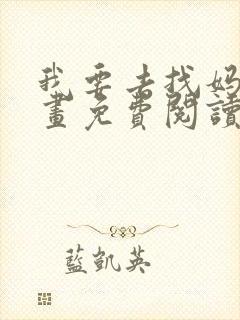 我要去找妈
畫免費閱讀
藍凱英